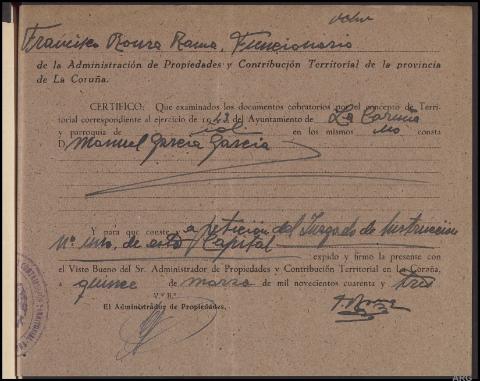 Francisco Roura Rama, Funcionario
de la Administración de Propiedades y Contribución Territorial de la provincia
de La Coruña.
CERTIFICO: Que examinados los documentos cobratorios por el concepto de Terri-
torial correspondiente al ejercicio de 1942 del Ayuntamiento de La Coruña
y parroquia de id. en los mismos no consta
D. Manuel García García
Y para que conste y a petición del Juzgado de Instrucción
nº uno. de esta Capital expido y firmo la presente con
el Visto Bueno del Sr. Administrador de Propiedades y Contribución Territorial en La Coruña,
a quince de marzo de mil novecientos cuarenta y tres
V.º B.º
El Administrador de Propiedades,
ARG